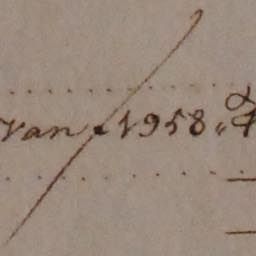 van 1958